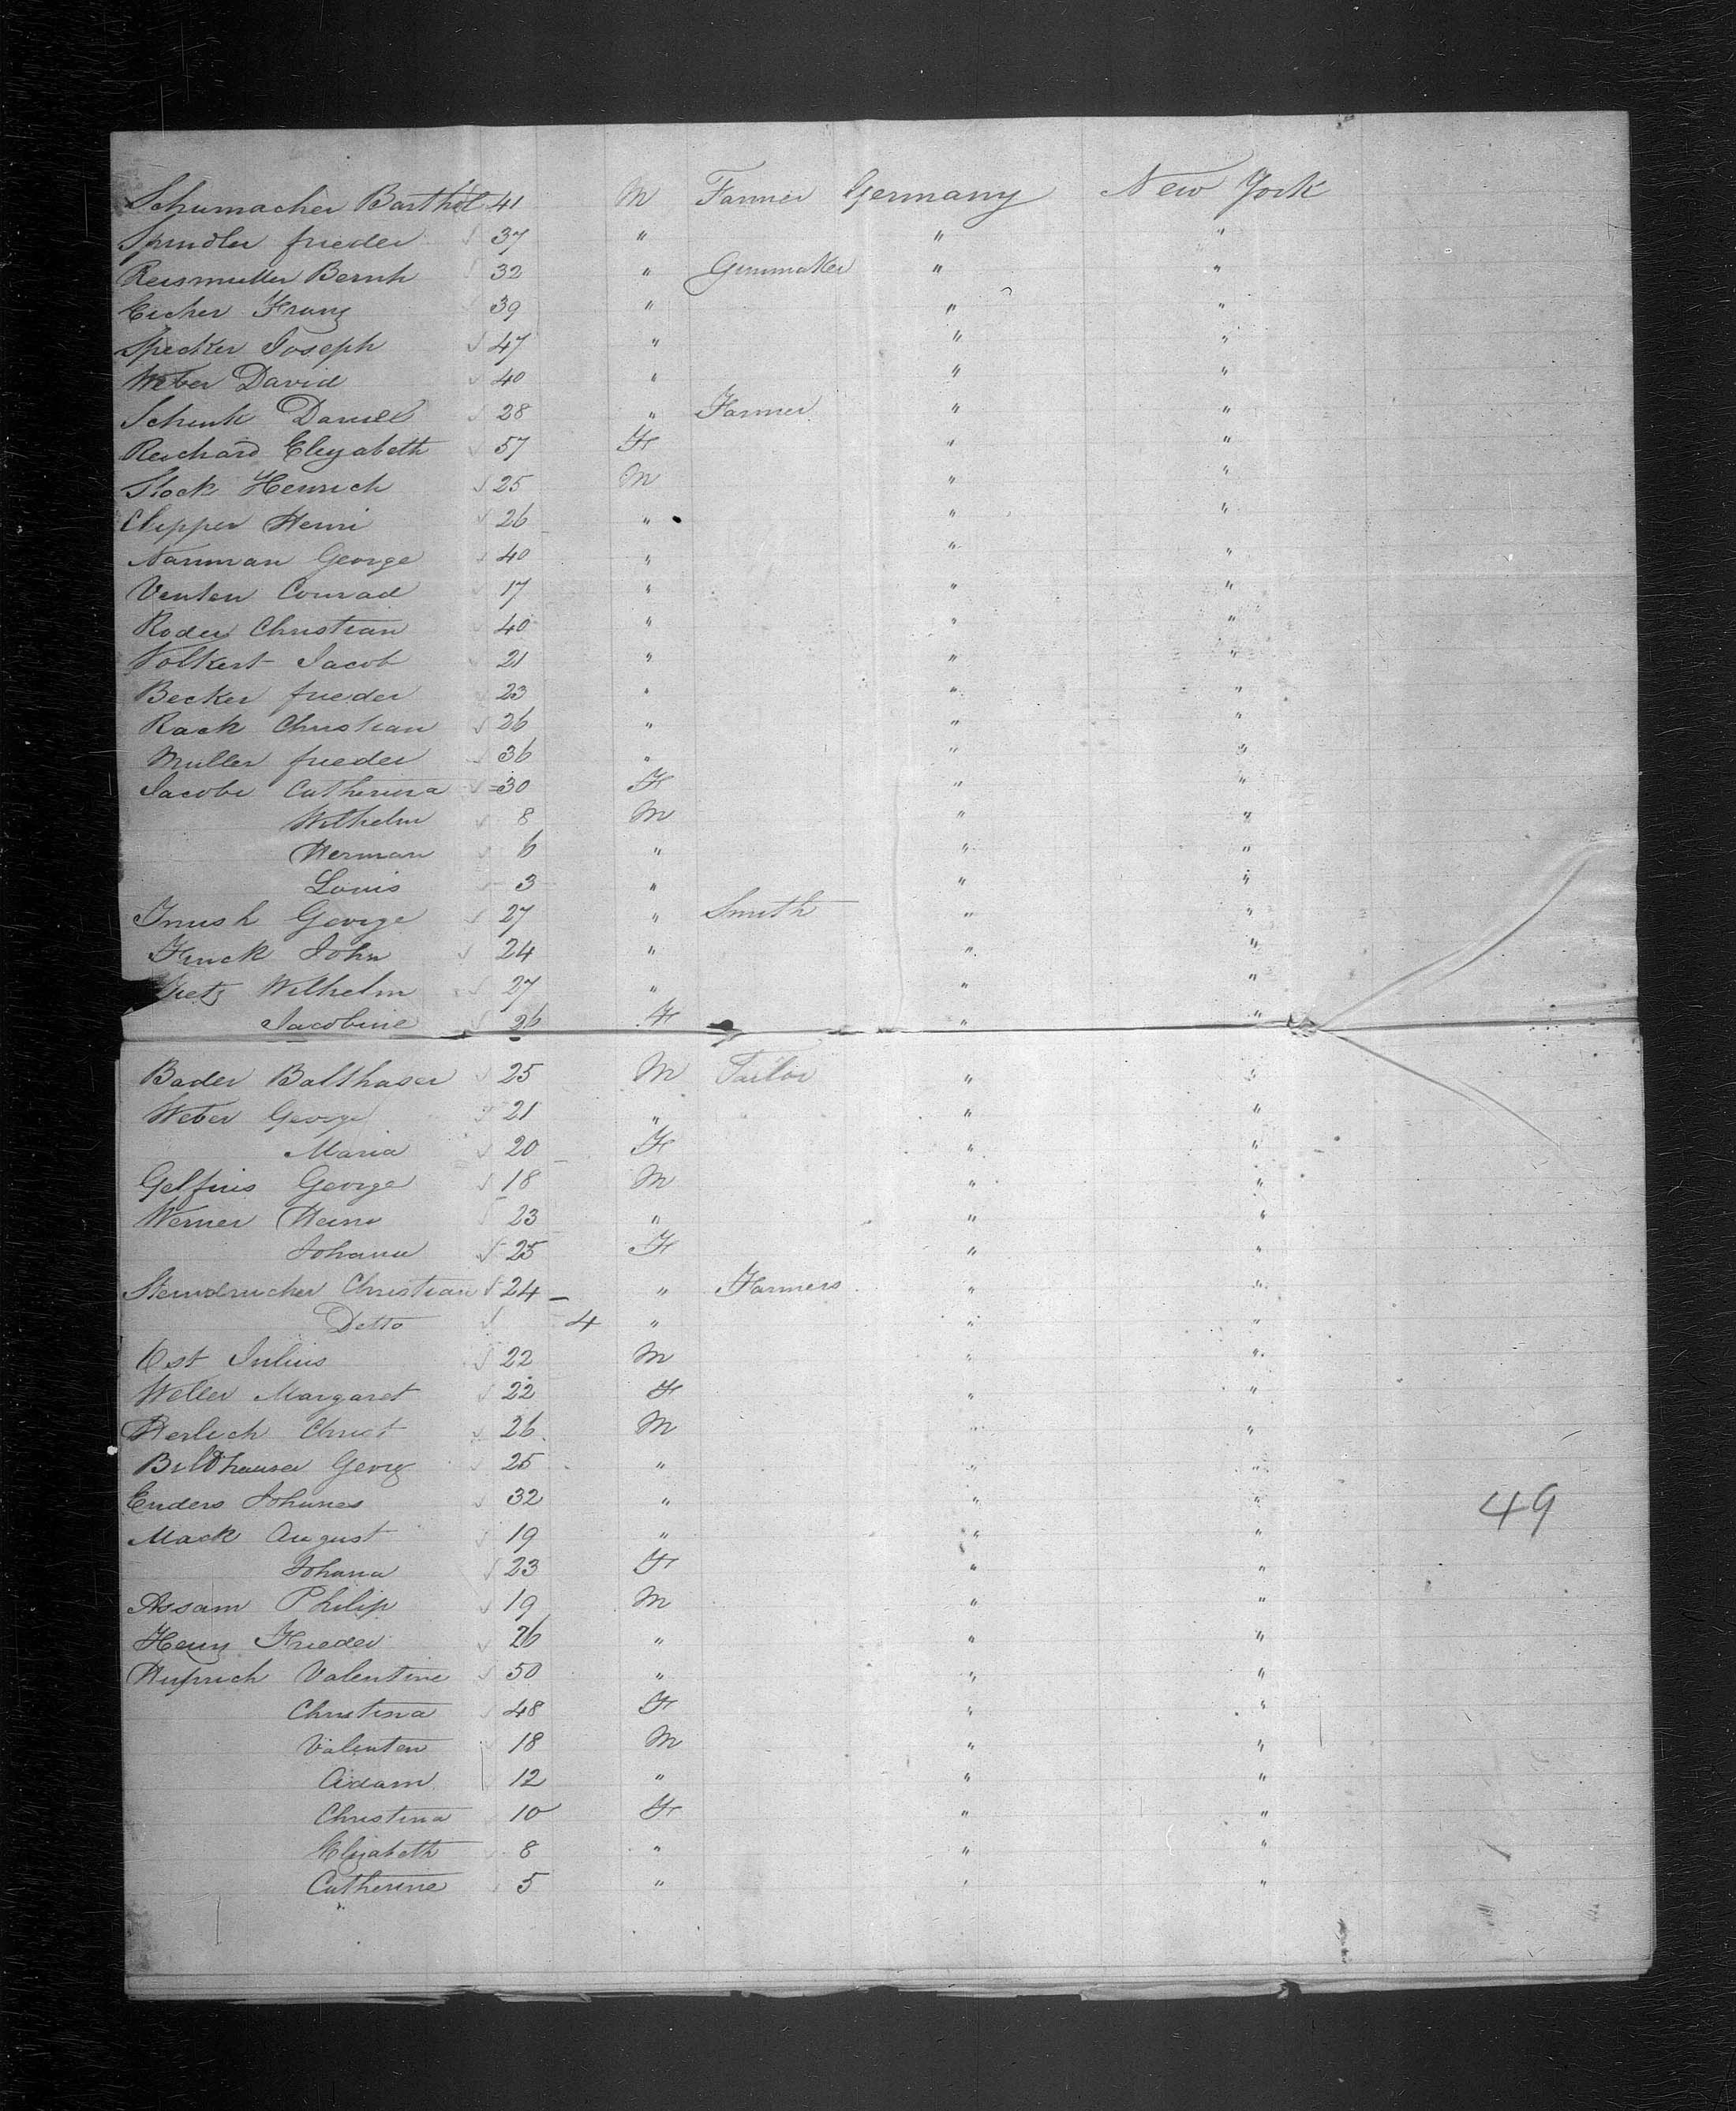 Schumacher Barthol 41 M Farmer Germany New York
Spindler frieder 37 " " "
Reismuller Bernh 32 " Gunmaker " "
Eicher Franz 39 " " "
Specker Joseph 47 " " "
Weber David 40 " " "
Schenk Daniel 28 " Farmer " "
Reichard Elizabeth 57 F " "
Stock Henrich 25 M " "
Clipper Henri 26 " " "
Nauman George 40 " " "
Venten Conrad 17 " " "
Roder Christian 40 " " "
Volkert Jacob 21 " " "
Becker frieder 23 " " "
Rack Christian 26 " " "
Muller frieder 36 " " "
Jacobi Catherina 30 F " "
Wilhelm 8 M " "
Herman 6 " " "
Louis 3 " " "
George 27 " Smith " "
Finck John 24 " " "
Wilhelm 27 " " "
Jacobine 26 F " "
Bader Balthaser 25 M Tailor " "
Weber George 21 " " "
Maria 20 F " "
Gelfius George 18 M " "
Werner Henri 23 " " "
Johanne 25 F " "
Steindrucher Christian 24 " Farmers " "
Detto 4 " " "
Ost Julius 22 M " "
Weller Margaret 22 F " "
Herlich Christ 26 M " "
Bildhauser Georg 25 " " "
Enders Johannes 32 " " " 49
Mack August 19 " " "
Johana 23 F " "
Assam Philip 19 M " "
Henz Frieder 26 " " "
Valentine 50 " " "
Christina 48 F " "
Valenten 18 M " "
Adam 12 " " "
Christina 10 F " "
Elizabeth 8 " " "
Catherine 5 " " "